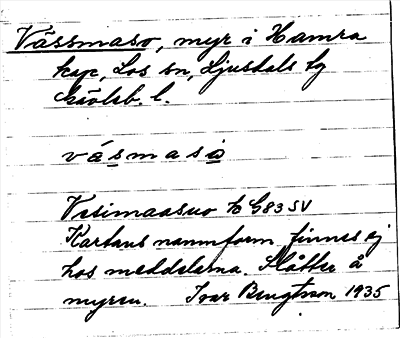 Vässmaso, myr i Hamra
kap, Los sn, Ljusdals tg
Gävleb. l.
vásmasò
Vesimaasuo k G83 SV
Kartans namnform finnes ej
hos meddelarna. Slåtter å
myren. Ivar Bengtsson 1935